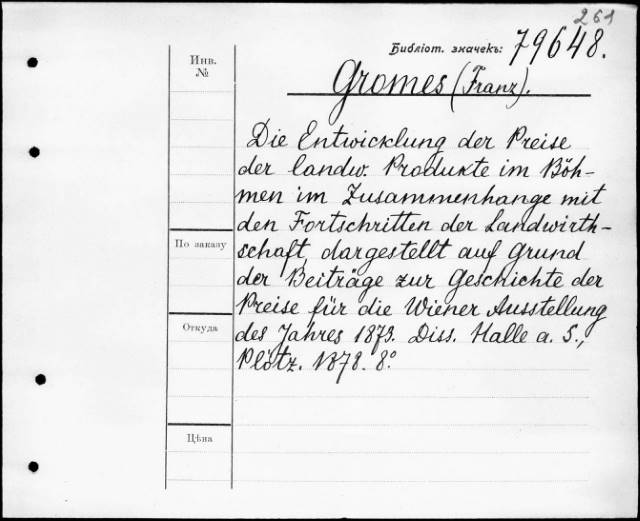 261
Библіот. значекъ: 79648.
Инв.
№
Gromes (Franz).
Die Entwicklung der Preise
der landw. Produkte im Böh-
men im Zusammenhange mit
den Fortschritten der Landwirth-
schaft, dargestellt auf Grund
der Beiträge zur Geschichte der
Preise für die Wiener Ausstellung
des Jahres 1873. Diss. Halle a. S.,
Plötz. 1878. 8°.
По заказу
Откуда
Цѣна